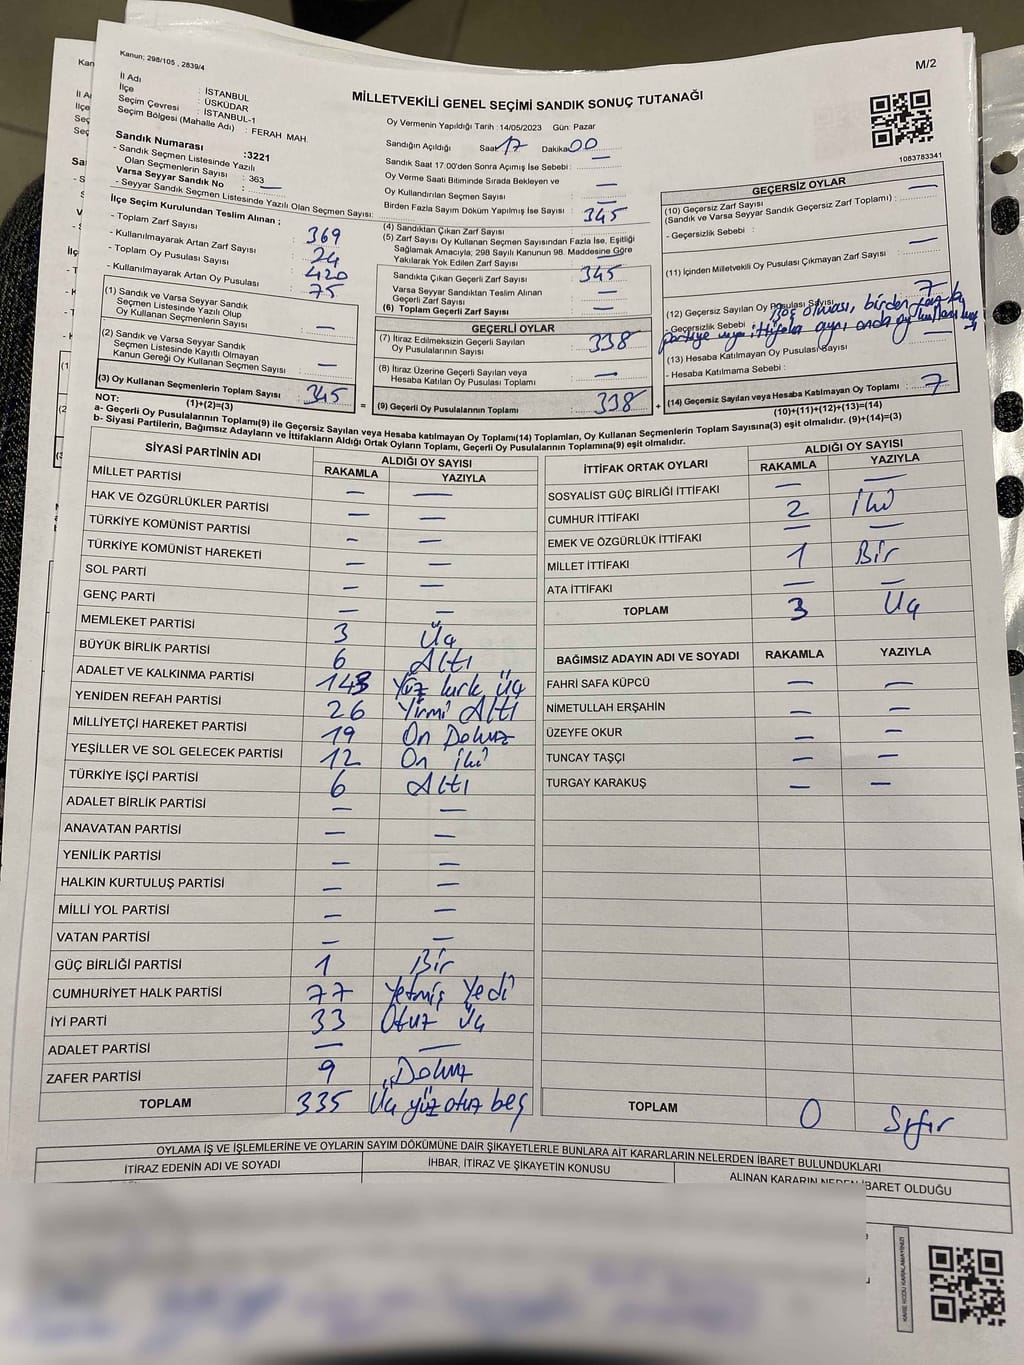 Kanun; 298/105 , 2839/4
M/2
İl Adı : İSTANBUL
İlçe : ÜSKÜDAR
Seçim Çevresi : İSTANBUL-1
Seçim Bölgesi (Mahalle Adı) : FERAH MAH.
MİLLETVEKİLİ GENEL SEÇİMİ SANDIK SONUÇ TUTANAĞI
Oy Vermenin Yapıldığı Tarih :14/05/2023 Gün: Pazar
Sandığın Açıldığı Saat 17 Dakika 00
Sandık Saat 17:00'den Sonra Açımış İse Sebebi : —
Oy Verme Saati Bitiminde Sırada Bekleyen ve
Oy Kullandırılan Seçmen Sayısı : —
Birden Fazla Sayım Döküm Yapılmış İse Sayısı : —
1083783341
Sandık Numarası :3221
- Sandık Seçmen Listesinde Yazılı
Olan Seçmenlerin Sayısı : 363
Varsa Seyyar Sandık No : —
- Seyyar Sandık Seçmen Listesinde Yazılı Olan Seçmen Sayısı:
İlçe Seçim Kurulundan Teslim Alınan ;
- Toplam Zarf Sayısı : 369
- Kullanılmayarak Artan Zarf Sayısı : 24
- Toplam Oy Pusulası Sayısı : 420
- Kullanılmayarak Artan Oy Pusulası : 75
(1) Sandık ve Varsa Seyyar Sandık
Seçmen Listesinde Yazılı Olup
Oy Kullanan Seçmenlerin Sayısı : —
(2) Sandık ve Varsa Seyyar Sandık
Seçmen Listesinde Kayıtlı Olmayan
Kanun Gereği Oy Kullanan Seçmen Sayısı : —
(3) Oy Kullanan Seçmenlerin Toplam Sayısı : 345
(1)+(2)=(3)
(4) Sandıktan Çıkan Zarf Sayısı : 345
(5) Zarf Sayısı Oy Kullanan Seçmen Sayısından Fazla İse, Eşitliği
Sağlamak Amacıyla; 298 Sayılı Kanunun 98. Maddesine Göre
Yakılarak Yok Edilen Zarf Sayısı : —
Sandıkta Çıkan Geçerli Zarf Sayısı : 345
Varsa Seyyar Sandıktan Teslim Alınan
Geçerli Zarf Sayısı : —
(6) Toplam Geçerli Zarf Sayısı : —
GEÇERLİ OYLAR
(7) İtiraz Edilmeksizin Geçerli Sayılan
Oy Pusulalarının Sayısı : 338
(8) İtiraz Üzerine Geçerli Sayılan veya
Hesaba Katılan Oy Pusulası Toplamı : —
= (9) Geçerli Oy Pusulalarının Toplamı : 338 +
GEÇERSİZ OYLAR
(10) Geçersiz Zarf Sayısı : —
(Sandık ve Varsa Seyyar Sandık Geçersiz Zarf Toplamı) :
- Geçersizlik Sebebi :
(11) İçinden Milletvekili Oy Pusulası Çıkmayan Zarf Sayısı : —
(12) Geçersiz Sayılan Oy Pusulası Sayısı : 7
- Geçersizlik Sebebi Boş olması, birden fazla
partiye veya ittifaka aynı anda oy kullanılması
(13) Hesaba Katılmayan Oy Pusulası Sayısı : —
- Hesaba Katılmama Sebebi :
(14) Geçersiz Sayılan veya Hesaba Katılmayan Oy Toplamı : 7
(10)+(11)+(12)+(13)=(14)
NOT:
a- Geçerli Oy Pusulalarının Toplamı(9) ile Geçersiz Sayılan veya Hesaba katılmayan Oy Toplamı(14) Toplamları, Oy Kullanan Seçmenlerin Toplam Sayısına(3) eşit olmalıdır. (9)+(14)=(3)
b- Siyasi Partilerin, Bağımsız Adayların ve İttifakların Aldığı Ortak Oyların Toplamı, Geçerli Oy Pusulalarının Toplamına(9) eşit olmalıdır.
SİYASİ PARTİNİN ADI ALDIĞI OY SAYISI
RAKAMLA YAZIYLA
MİLLET PARTİSİ — —
HAK VE ÖZGÜRLÜKLER PARTİSİ — —
TÜRKİYE KOMÜNİST PARTİSİ — —
TÜRKİYE KOMÜNİST HAREKETİ — —
SOL PARTİ — —
GENÇ PARTİ — —
MEMLEKET PARTİSİ 3 Üç
BÜYÜK BİRLİK PARTİSİ 6 Altı
ADALET VE KALKINMA PARTİSİ 143 Yüz kırk üç
YENİDEN REFAH PARTİSİ 26 Yirmi Altı
MİLLİYETÇİ HAREKET PARTİSİ 19 On Dokuz
YEŞİLLER VE SOL GELECEK PARTİSİ 12 On iki
TÜRKİYE İŞÇİ PARTİSİ 6 Altı
ADALET BİRLİK PARTİSİ — —
ANAVATAN PARTİSİ — —
YENİLİK PARTİSİ — —
HALKIN KURTULUŞ PARTİSİ — —
MİLLİ YOL PARTİSİ — —
VATAN PARTİSİ — —
GÜÇ BİRLİĞİ PARTİSİ 1 Bir
CUMHURİYET HALK PARTİSİ 77 Yetmiş Yedi
İYİ PARTİ 33 Otuz üç
ADALET PARTİSİ — —
ZAFER PARTİSİ 9 Dokuz
TOPLAM 335 Üç yüz otuz beş
İTTİFAK ORTAK OYLARI ALDIĞI OY SAYISI
RAKAMLA YAZIYLA
SOSYALİST GÜÇ BİRLİĞİ İTTİFAKI — —
CUMHUR İTTİFAKI 2 İki
EMEK VE ÖZGÜRLÜK İTTİFAKI — —
MİLLET İTTİFAKI 1 Bir
ATA İTTİFAKI — —
TOPLAM 3 Üç
BAĞIMSIZ ADAYIN ADI VE SOYADI RAKAMLA YAZIYLA
FAHRİ SAFA KÜPCÜ — —
NİMETULLAH ERŞAHİN — —
ÜZEYFE OKUR — —
TUNCAY TAŞÇI — —
TURGAY KARAKUŞ — —
TOPLAM 0 Sıfır
OYLAMA İŞ VE İŞLEMLERİNE VE OYLARIN SAYIM DÖKÜMÜNE DAİR ŞİKAYETLERLE BUNLARA AİT KARARLARIN NELERDEN İBARET BULUNDUKLARI
İTİRAZ EDENİN ADI VE SOYADI İHBAR, İTİRAZ VE ŞİKAYETİN KONUSU ALINAN KARARIN NEDEN İBARET OLDUĞU
KARE KODU KARALAMAYINIZ!